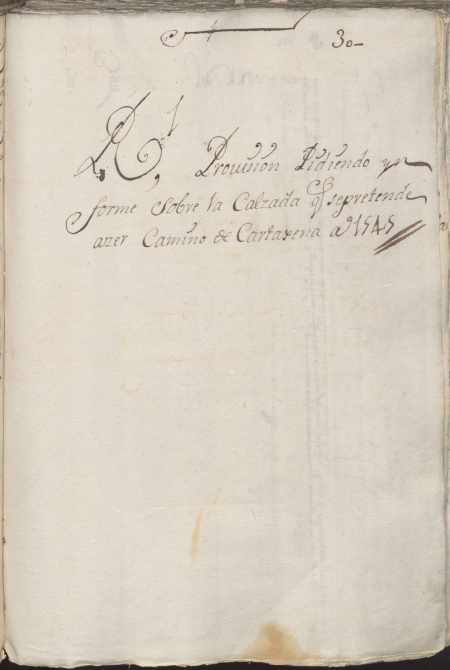 30
Rl, Provision Pidiendo yn
forme sobre la Calzada q sepretende
azer Camino de Cartaxena a 1545